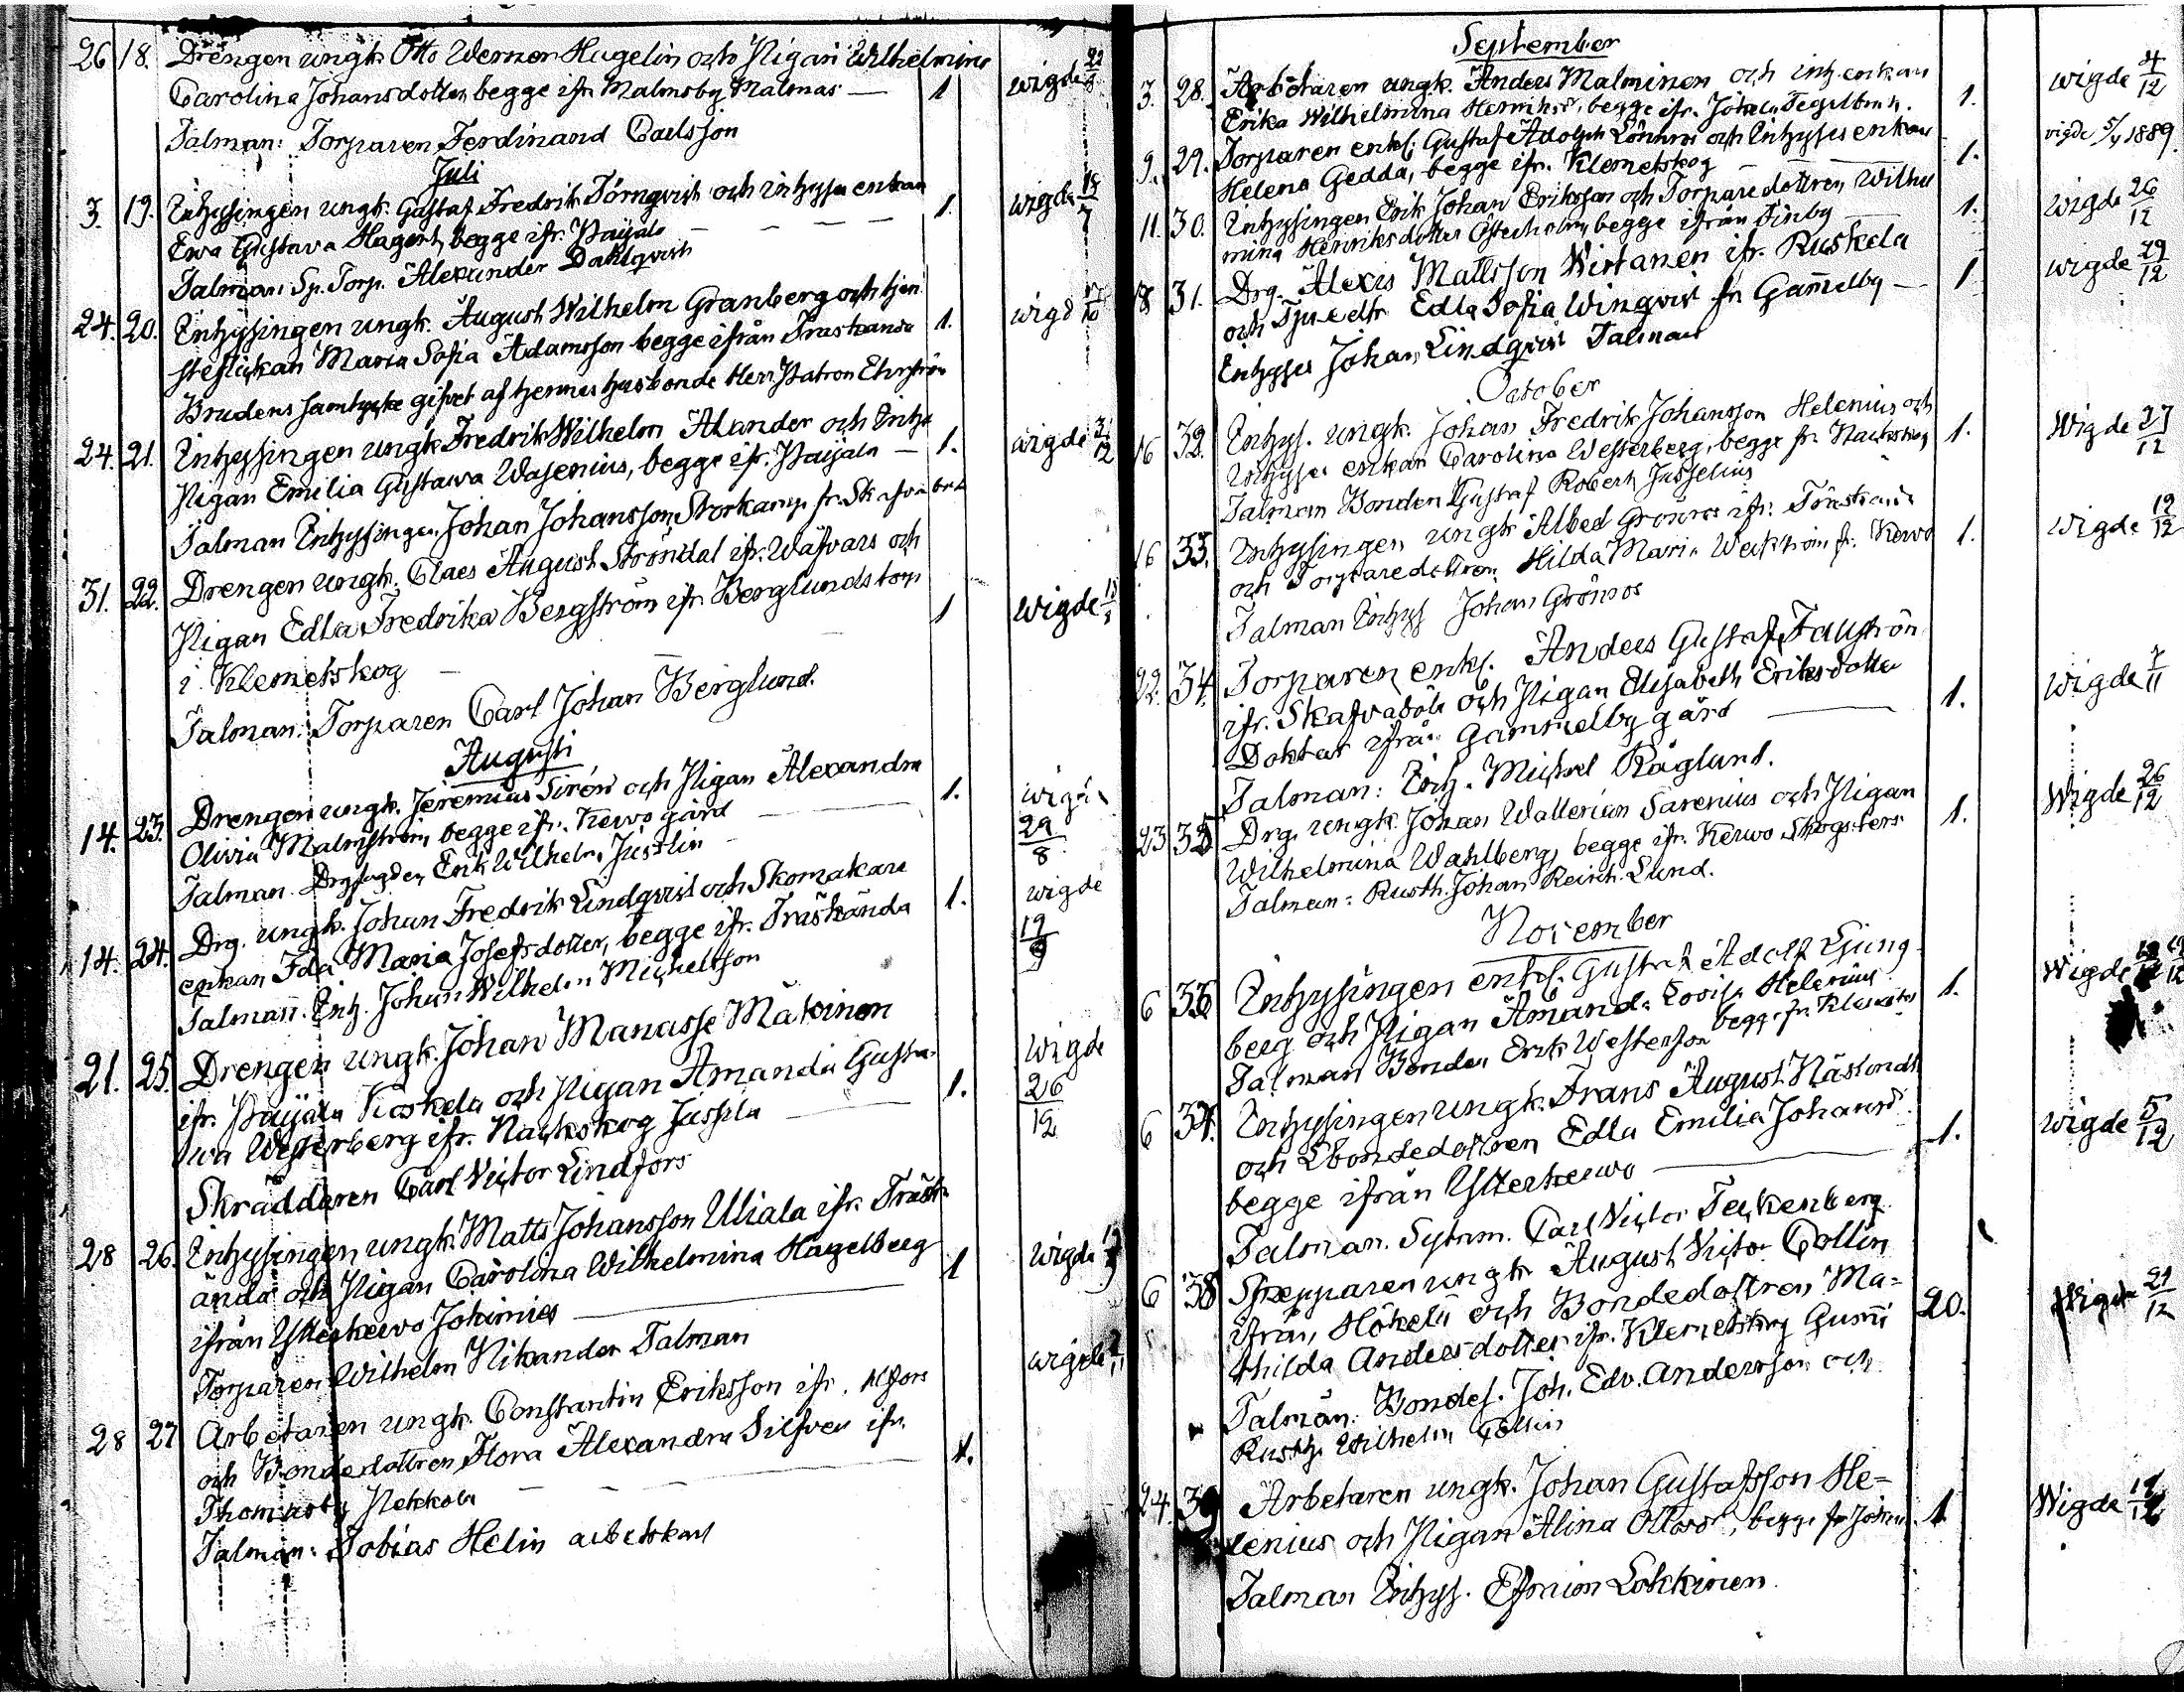 26 18. Drengen ungk. Otto Werner Hagelin och Pigan Wilhelmina
Carolina Johansdotter, begge ifr. Malmsby Malmas — 1 wigde
Talman: Torparen Ferdinand Carlsson
Juli
3. 19. Inhysingen ungk. Gustaf Fredrik Törnqvist och inhyses enkan
Ewa Gustava Hagert, begge ifr. Paijala — — — 1. wigde
Talman Sp. Torp. Alexander Dahlqvist
24. 20. Inhysingen ungk. August Wilhelm Granberg och tjen
steflickan Maria Sofia Adamsson begge ifrån Träskända 1. wigd
Brudens samtycke gifvet af hennes husbonde Herr Patron Ehrström
24. 21. Inhysingen ungk. Fredrik Wilhelm Alander och Inhy
Pigan Emilia Gustawa Wasenius, begge ifr. Paijala — 1. wigde 31/12
Talman Inhysingen Johan Johansson Storkamp fr.
31. 22. Drengen ungk. Claes August Ströndal ifr. Wäfvars och
Pigan Edla Fredrika Bergström ifr Berglunds torp
i Klemetskog — 1 wigde
Talman. Torparen Carl Johan Berglund.
Augusti
14. 23. Drengen ungk. Jeremias Sirén och Pigan Alexandra
Olivia Malmström, begge ifr. Kerwo gård — 1. wigde 29/8
Talman. Erik Wilhelm Justlin
14. 24. Drg. ungk. Johan Fredrik Lindqvist och Skomakare
enkan Ida Maria Josefsdotter, begge ifr. Träskända 1. wigde 19/9
Talman. Inh. Johan Wilhelm Michelsson
21. 25. Drengen ungk. Johan Manasse Mäkinen
ifr. Paijala Koskela och Pigan Amanda Gusta-
wa Westerberg ifr. Nackskog Jussila — 1. wigde 26/12
Skräddaren Carl Victor Lindfors
28 26. Inhysingen ungk. Matts Johansson Uliala ifr. Träsk
ända och Pigan Carolina Wilhelmina Hagelberg 1 wigde
ifrån Ytterkerwo Johimies —
Torparen Wilhelm Nikander Talman
28 27 Arbetaren ungk. Constantin Eriksson ifr. H:fors
och Bondedottren Flora Alexandra Silfver ifr. wigde
Thomasby Pekkola — — — 1.
Talman: Tobias Helin arbetskarl
September
3. 28. Arbetaren ungk. Anders Malminen och inh. enkan
Erika Wilhelmina begge ifr. 1. wigde 4/12
9. 29. Torparen enkl. Gustaf Adolph Lönnros och Inhyses enkan
Helena Gedda, begge ifr. Klemetskog — 1. vigde 5/4 1889.
11. 30. Inhysingen Erik Johan Eriksson och Torparedottren Wilhel
mina Henriksdotter Österholm, begge ifrån Finby — 1. wigde 26/12
18 31. Drg. Alexis Mattsson Wirtanen ifr. Ruskela
och Edla Sofia Winqvist fr Gam̄elby — 1 wigde 29/12
Inhyses Johan Lindqvist Talman
October
16 32. Inhys. ungk. Johan Fredrik Johansson Helenius och
Inhyses enkan Carolina Westerberg, begge fr. Nackskog 1. Wigde 27/12
Talman Bonden Gustaf Robert Jusselius
16 33. Inhysingen ungk. Albed Grönros ifr. Träskända
och Torparedottren Hilda Maria Weckström fr. Kerwo 1. Wigde 12/12
Talman Inhys Johan Grönros
22. 34. Torparen enkl. Anders Gustaf Fallström
ifr. Skafvaböle och Pigan Elisabeth Eriksdotter
Doktar ifrån Gammelby gård — 1. Wigde 7/11
Talman: Inh. Michel Råglund.
23 35 Drg. ungk. Johan Wallerian Sarenius och Pigan
Wilhelmina Wahlberg, begge ifr. Kerwo 1. Wigde 26/12
Talman: Rusth. Johan Reinh. Lund.
November
6 36 Inhysingen enkl. Gustaf Adolf Ljung-
berg och Pigan Amanda Lovisa Helenius 1. Wigde
Talman Bonden Erik Westersson begge fr.
6 37. Inhysingen ungk. Frans August Näslindt
och Bondedottren Edla Emilia Johansd.
begge ifrån Ytterkerwo — 1. Wigde 5/12
Talman. Sytnm. Carl Victor Teckenberg
6 38 Skepparen ungk. August Victor Collin
ifrån Hökelä och Bondedottren Ma-
thilda Andersdotter ifr. Klemetskog Gum̄i 20. Wigde 21/12
Talmän: Bondes. Joh. Edv. Andersson och
Rusth. Wilhelm Collin
24. 39 Arbetaren ungk. Johan Gustafsson He-
lenius och Pigan Alina Ottosdr, begge fr 1. Wigde
Talman Inhys. Efraim Lokkinen.